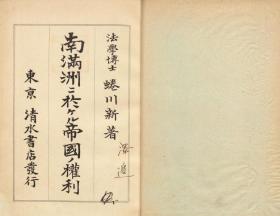 法學博士 蜷川新著
南滿洲ニ於ケル帝國ノ權利
東京 清水書店發行